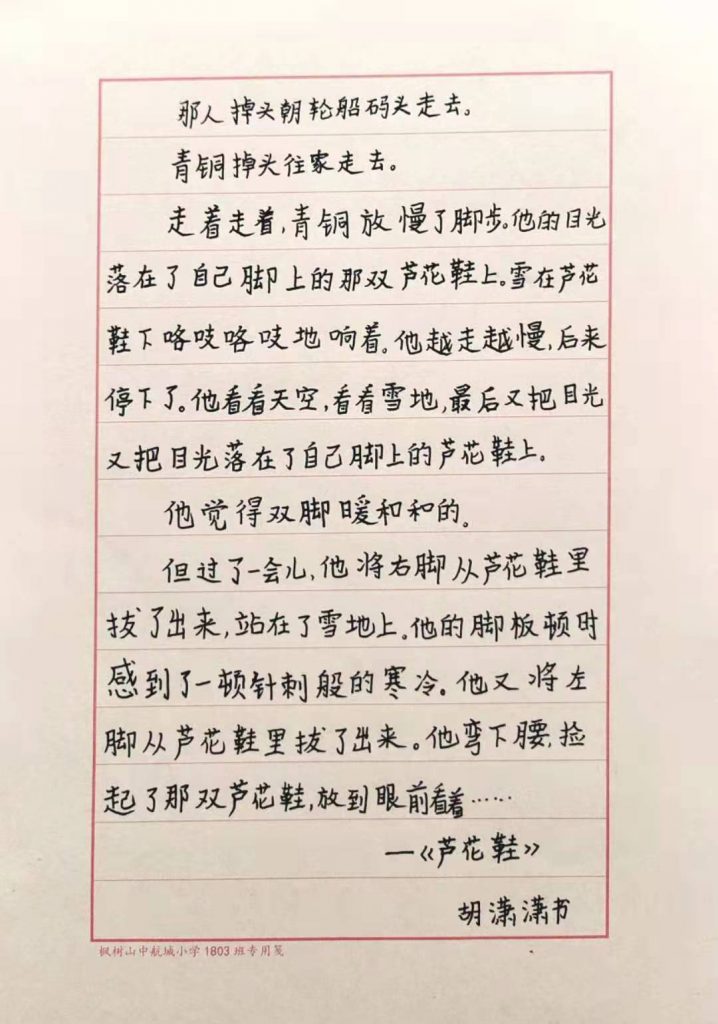 那人掉头朝轮船码头走去。
青铜掉头往家走去。
走着走着，青铜放慢了脚步。他的目光
落在了自己脚上的那双芦花鞋上。雪在芦花
鞋下咯吱咯吱地响着。他越走越慢，后来
停下了。他看看天空，看看雪地，最后又把目光
又把目光落在了自己脚上的芦花鞋上。
他觉得双脚暖和和的。
但过了一会儿，他将右脚从芦花鞋里
拔了出来，站在了雪地上。他的脚板顿时
感到了一顿针刺般的寒冷。他又将左
脚从芦花鞋里拔了出来。他弯下腰，捡
起了那双芦花鞋，放到眼前看着……
—《芦花鞋》
胡潇潇书
枫树山中航城小学1803班专用笺